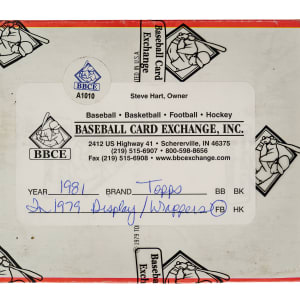 Baseball Card
Exchange
BBCE
A1010
Steve Hart, Owner
Baseball • Basketball • Football • Hockey
BBCE
BASEBALL CARD EXCHANGE, INC.
2412 US Highway 41 • Schererville, IN 46375
(219) 515-6907 • 800-598-8656
Fax (219) 515-6908 • www.bbcexchange.com
YEAR 1981 BRAND Topps BB BK
In 1979 Display/Wrappers FB HK
Baseball Card
Exchange